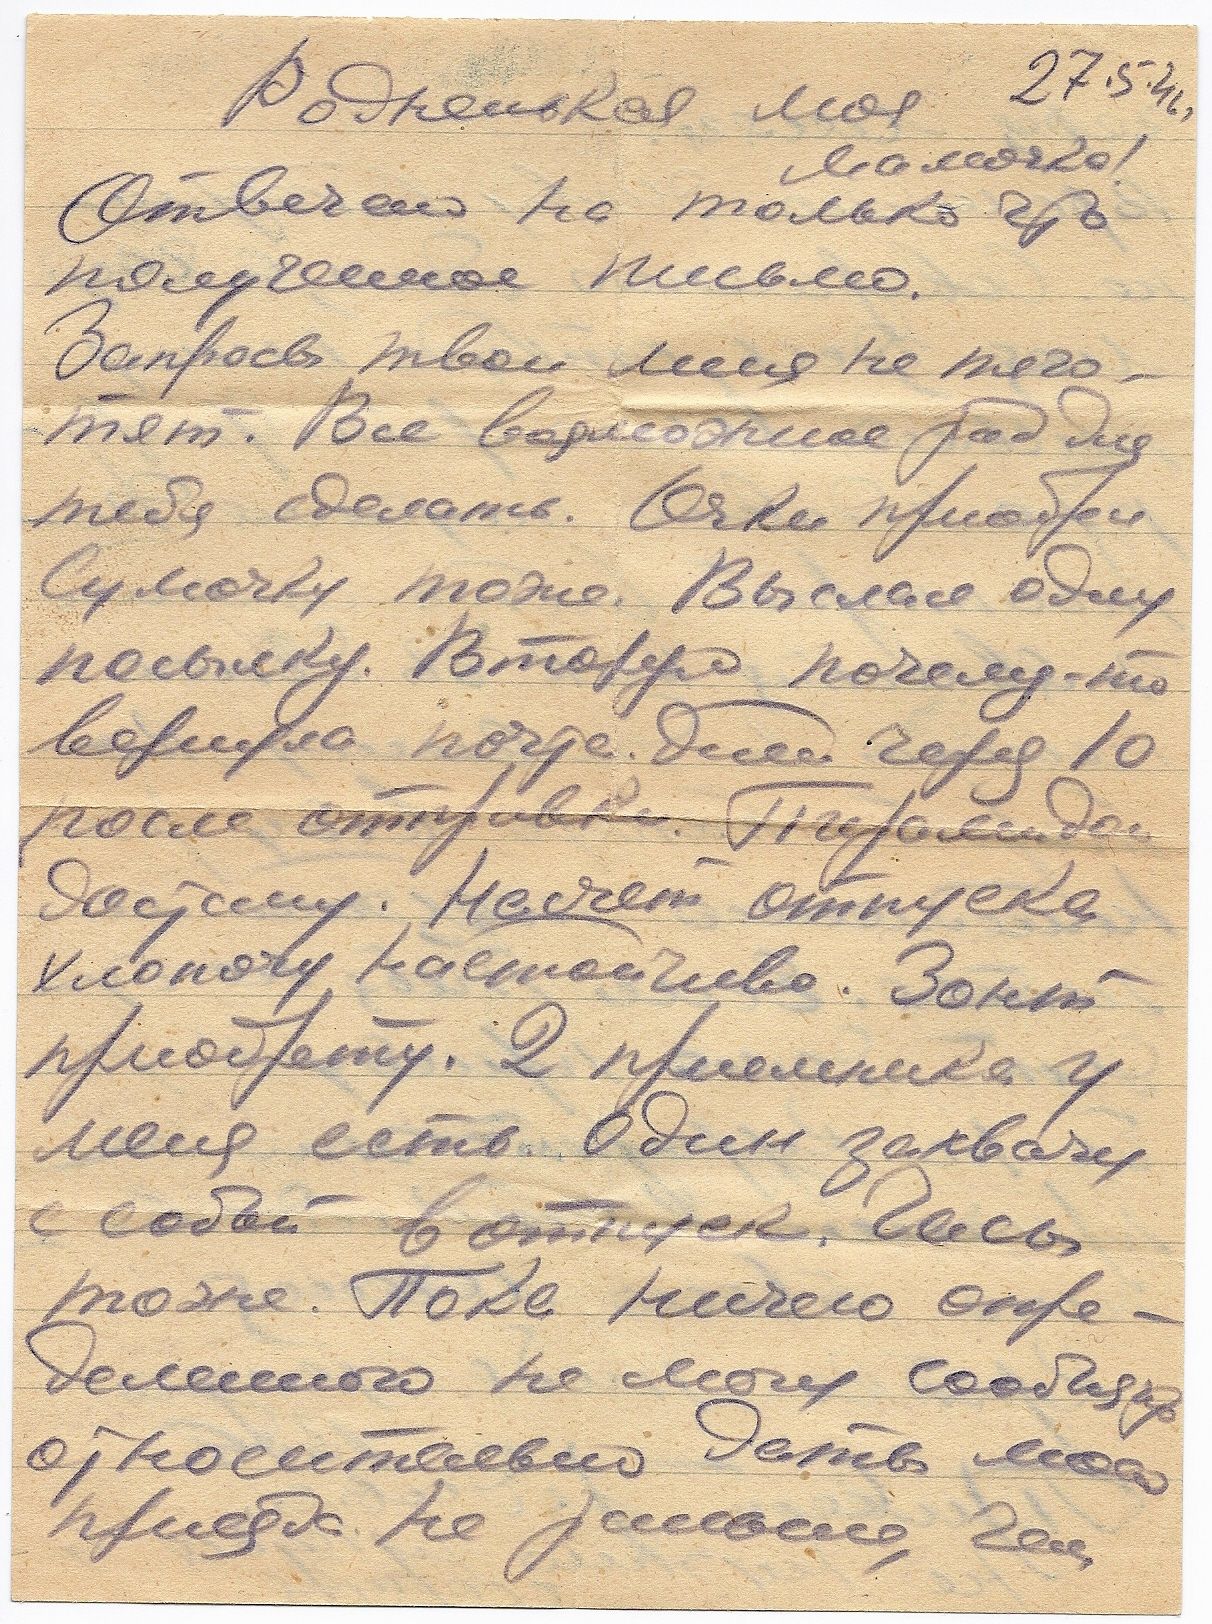 27.5.46.
Родненькая моя
мамочка!
Отвечаю на только что
полученное письмо.
Запросы твои меня не тяго-
тят. Все возможное рад для
тебя сделать. Очки приобрел
Сумочку тоже. Выслал одну
посылку. Вторую почему-то
вернула почта. Дней через 10
после отправки. Пирамидон
достану. Насчет отпуска
хлопочу настойчиво. Зонт
приобрету. 2 приемника у
меня есть. Один захвачу
с собой в отпуск. Часы
тоже. Пока ничего опре-
деленного не могу сообщить
относительно даты моего
приезда. Не раньше, чем